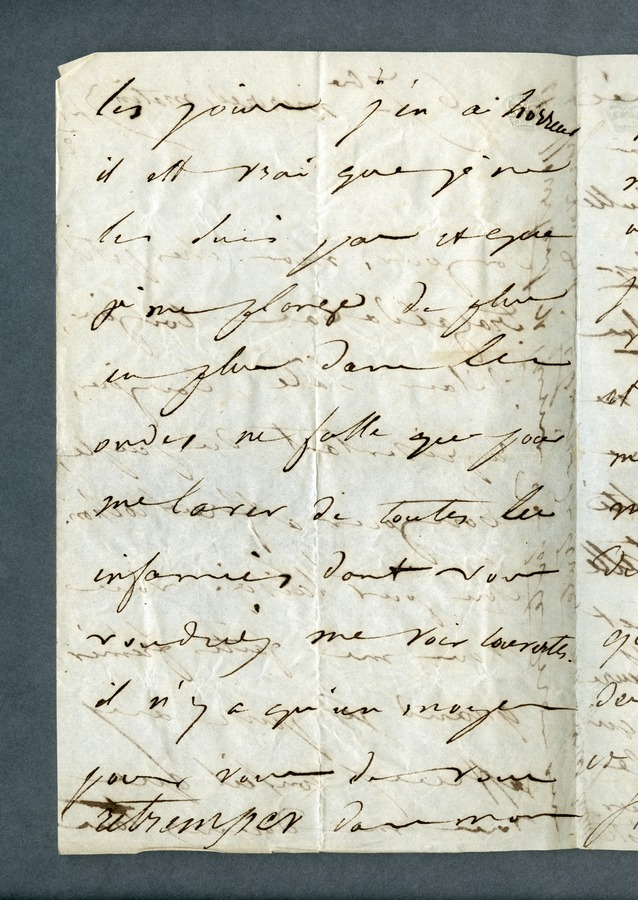 les jours j'en ai horreur
il est vrai que je ne
les suis pas et que
je me plonge de plus
en plus dans les
ondes ne fusse que pour
me laver de toutes les
infamies dont vous
voudriez me voir couverte.
il n'y a qu'un moyen
pour vous de vous
retremper dans mon